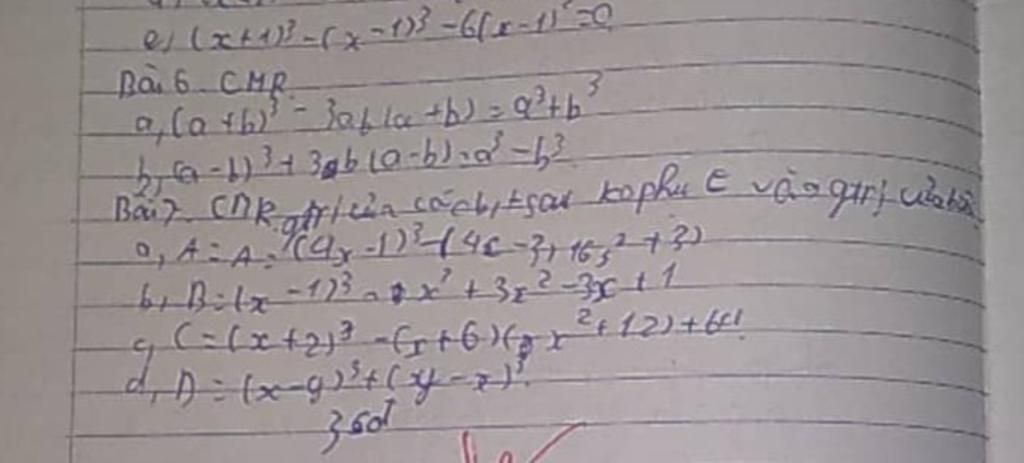 e, (x+1)³-(x-1)³-6(x-1)²=0
Bài 6. CMR
a, (a+b)³ - 3ab(a+b) = a³+b³
b, (a-b)³ + 3ab(a-b) = a³-b³
Bài 7. CMR gtrị của các b, t sau ko phụ ∈ vào gtrị của biến
a, A = A = (4x-1)³-(4x-3)(16x²+3)
b, B = (x-1)³ - x³ + 3x² - 3x + 1
c, C = (x+2)³ - (x+6)(x²+12) + 64
d, D = (x-y)³ + (y-x)³